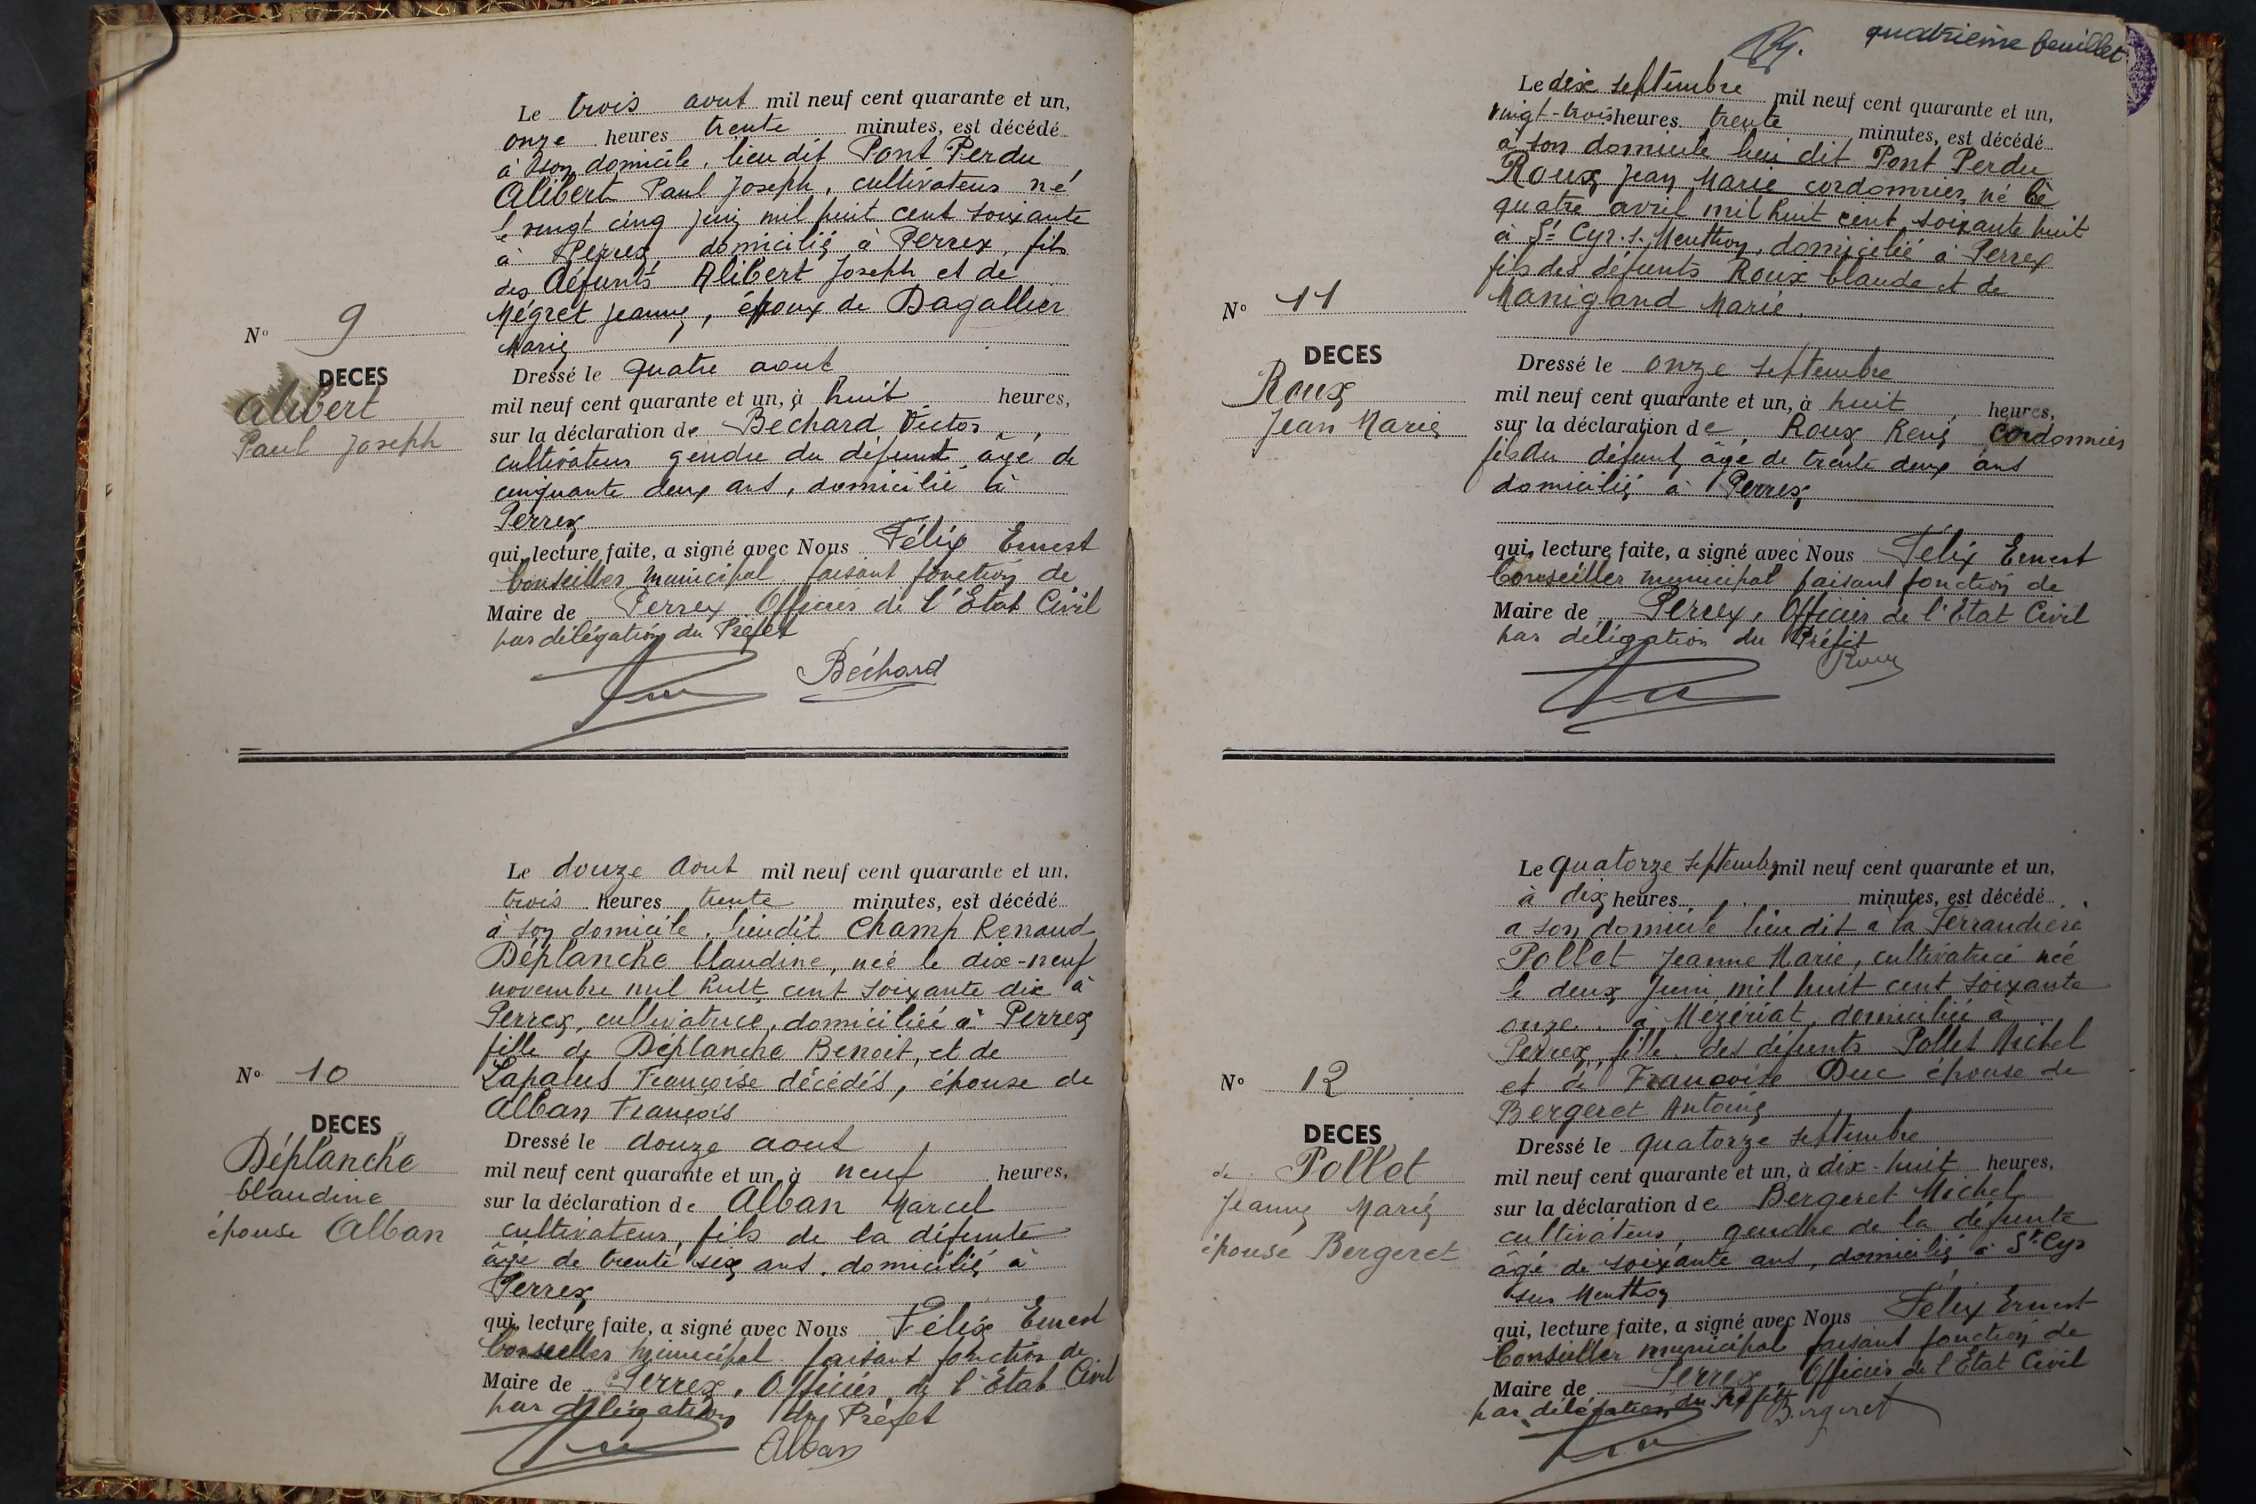 Le trois aout mil neuf cent quarante et un,
onze heures trente minutes, est décédé
à son domicile, lieu dit Pont Perdu
Alibert Paul Joseph, cultivateur né
le vingt cinq juin mil huit cent soixante
à Perrex domicilié à Perrex, fils
des défunts Alibert Joseph et de
Mégret Jeanne, époux de Dagallier
Marie
N° 9
DECES
Alibert
Paul Joseph
Dressé le quatre aout
mil neuf cent quarante et un, à huit heures,
sur la déclaration de Bechard Victor,
cultivateur gendre du défunt, âgé de
cinquante deux ans, domicilié à
Perrex
qui, lecture faite, a signé avec Nous Félix Ernest
Conseiller municipal faisant fonction de
Maire de Perrex Officier de l'Etat Civil
par délégation du Préfet
Béchard
Le douze aout mil neuf cent quarante et un,
trois heures trente minutes, est décédé
à son domicile, lieudit Champ Renaud
Déplanche Claudine, née le dix-neuf
novembre mil huit cent soixante dix à
Perrex, cultivatrice, domiciliée à Perrex
fille de Déplanche Benoit, et de
Lapalus Françoise décédés, épouse de
Alban François
N° 10
DECES
Déplanche
Claudine
épouse Alban
Dressé le douze aout
mil neuf cent quarante et un, à neuf heures,
sur la déclaration de Alban Marcel
cultivateur, fils de la défunte
âgé de trente six ans, domicilié à
Perrex
qui, lecture faite, a signé avec Nous Félix Ernest
Conseiller municipal faisant fonction de
Maire de Perrex, Officier de l'Etat Civil
par délégation du Préfet
Alban
quatrième feuillet
Le dix septembre mil neuf cent quarante et un,
vingt-trois heures trente minutes, est décédé
à son domicile lieu dit Pont Perdu
Roux Jean Marie cordonnier, né le
quatre avril mil huit cent soixante huit
à St Cyr s. Menthon, domicilié à Perrex
fils des défunts Roux Claude et de
Manigand Marie.
N° 11
DECES
Roux
Jean Marie
Dressé le onze septembre
mil neuf cent quarante et un, à huit heures,
sur la déclaration de Roux René Cordonnier
fils du défunt, âgé de trente deux ans
domicilié à Perrex
qui, lecture faite, a signé avec Nous Félix Ernest
Conseiller municipal faisant fonction de
Maire de Perrex, Officier de l'Etat Civil
par délégation du Préfet
Roux
Le quatorze septembre mil neuf cent quarante et un,
à dix heures minutes, est décédé
a son domicile lieu dit à la Ferrandière
Pollet Jeanne Marie, cultivatrice née
le deux Juin mil huit cent soixante
onze à Mézériat, domiciliée à
Perrex, fille des défunts Pollet Michel
et de Françoise Duc épouse de
Bergeret Antoine
N° 12
DECES
de Pollet
Jeanne Marie
épouse Bergeret
Dressé le quatorze septembre
mil neuf cent quarante et un, à dix-huit heures,
sur la déclaration de Bergeret Michel
cultivateur, gendre de la défunte
âgé de soixante ans, domicilié à St Cyr
sur Menthon
qui, lecture faite, a signé avec Nous Félix Ernest
Conseiller municipal faisant fonction de
Maire de Perrex, Officier de l'Etat Civil
par délégation du Préfet
Bergeret